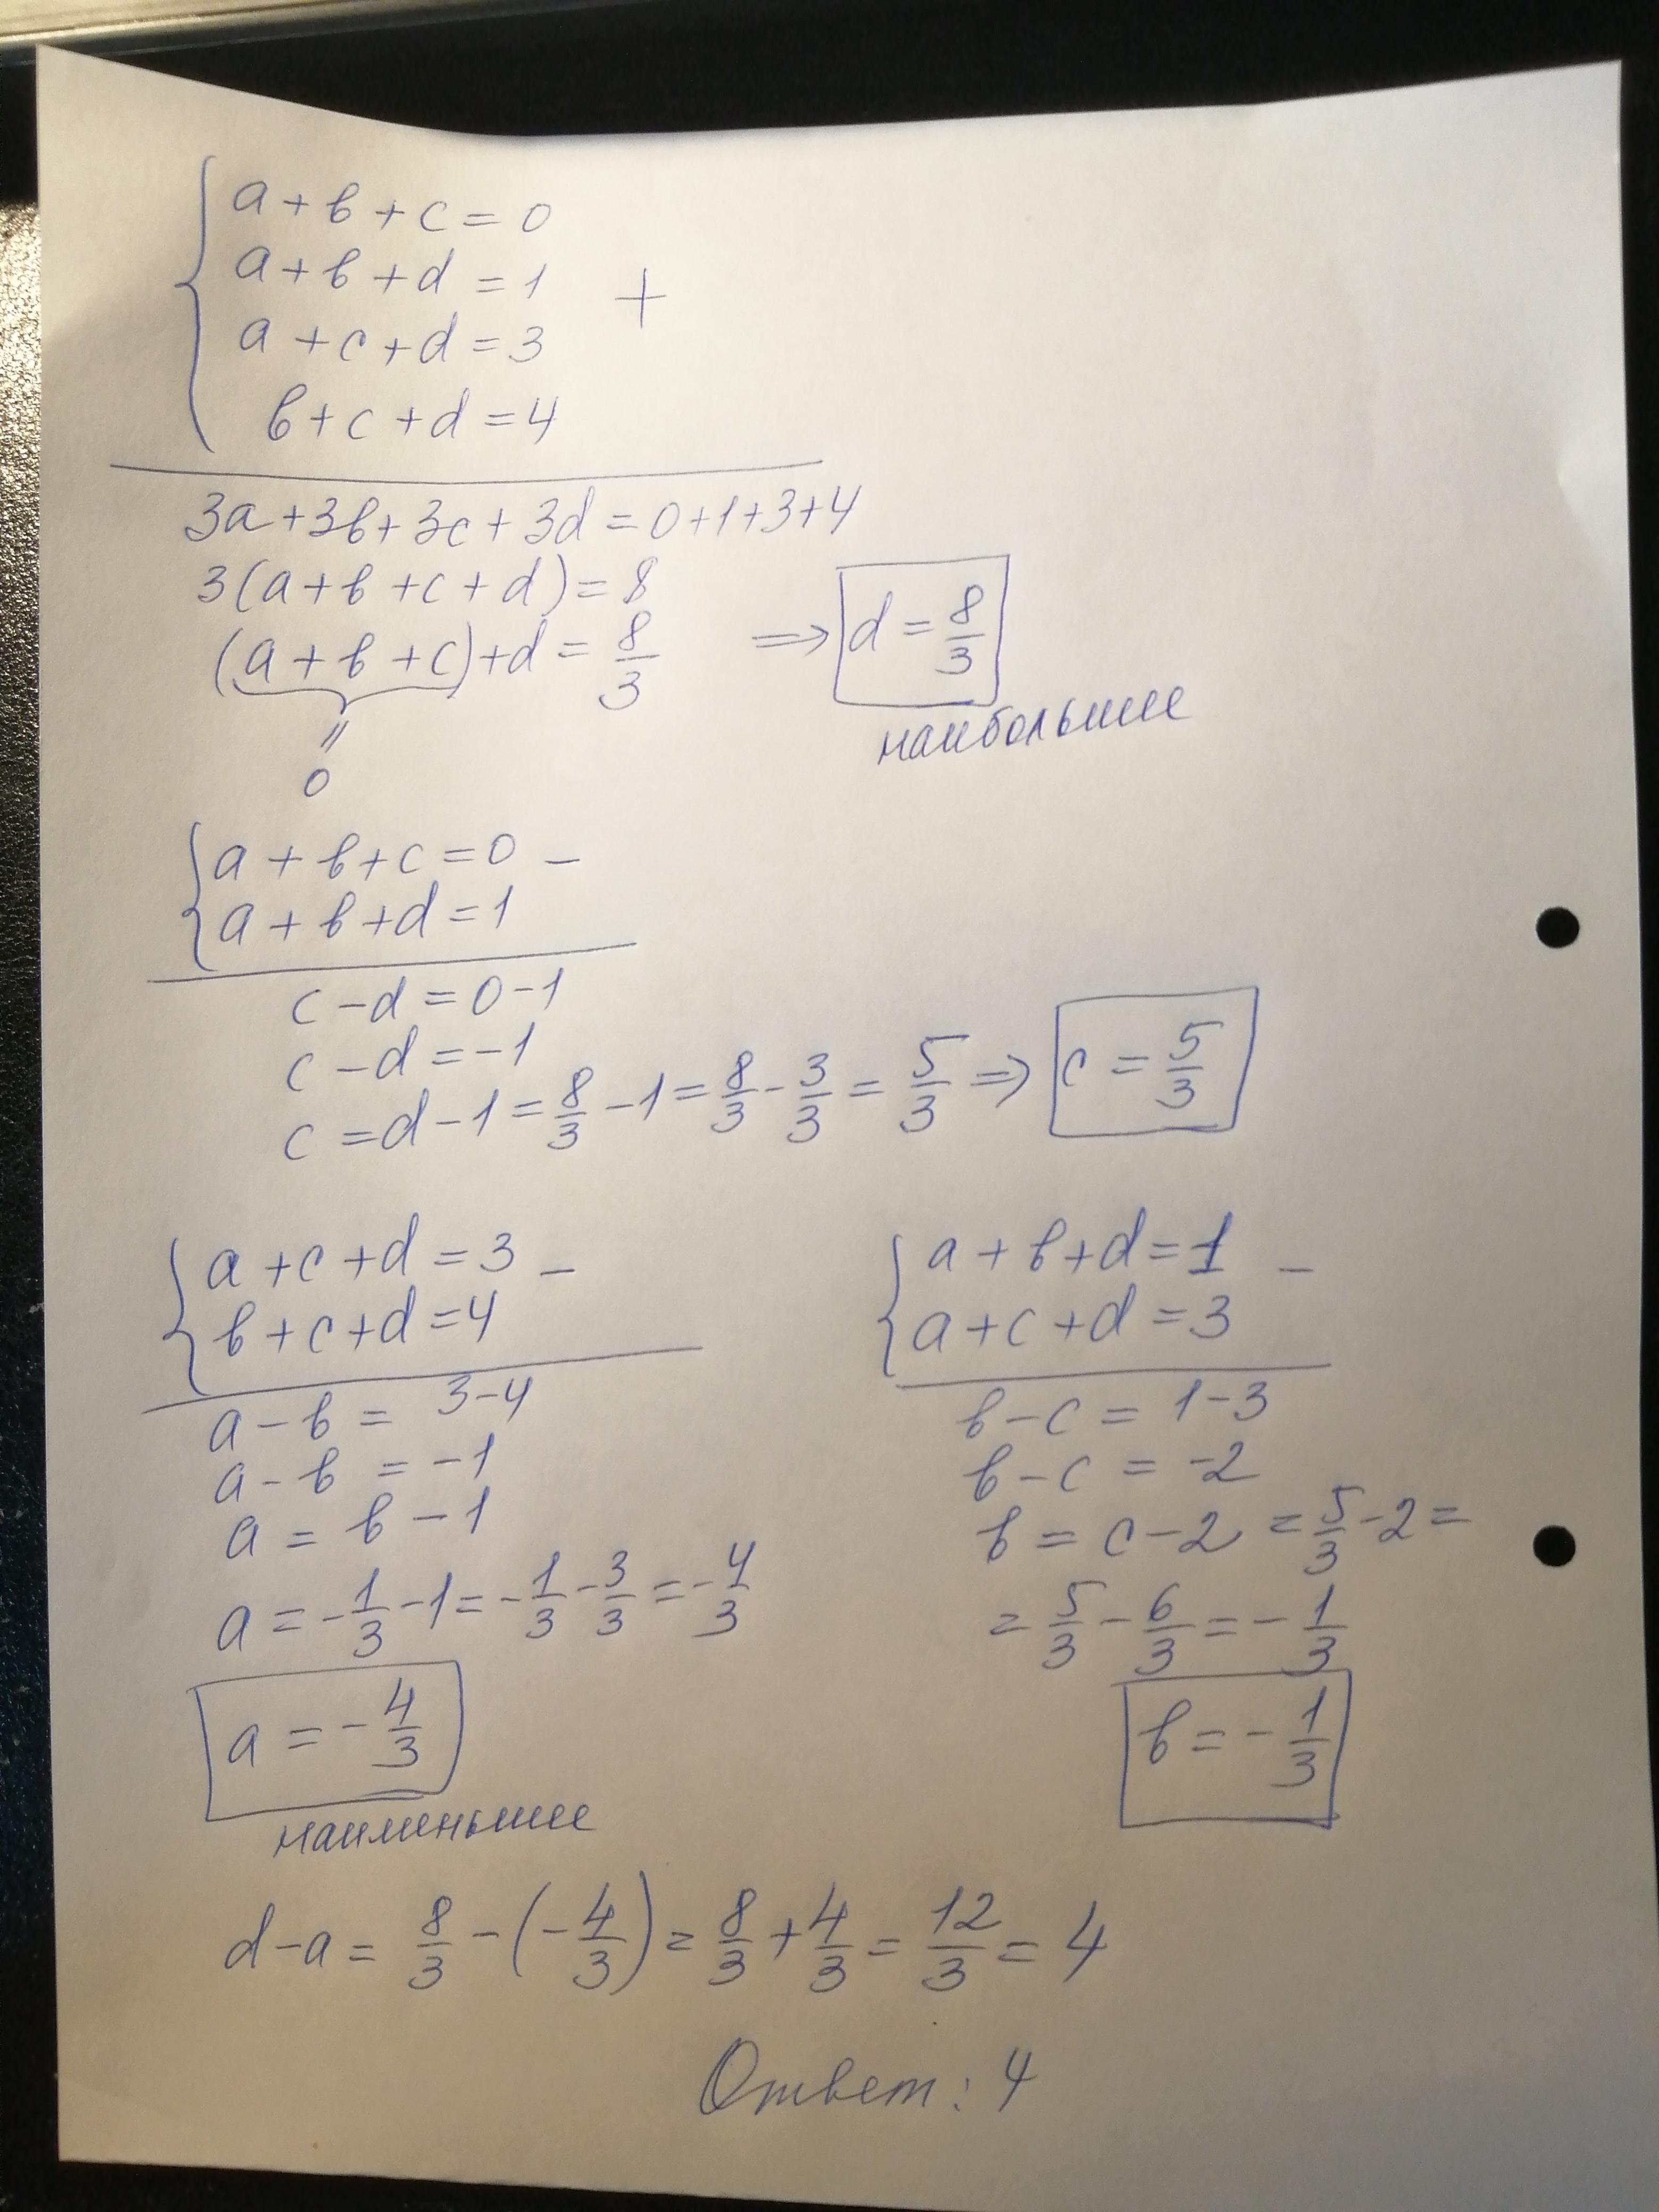 a + b + c = 0
a + b + d = 1 +
a + c + d = 3
b + c + d = 4
3a + 3b + 3c + 3d = 0+1+3+4
3(a + b + c + d) = 8
(a + b + c) + d = 8/3 ⇒ d = 8/3
наибольшее
=
0
a + b + c = 0 −
a + b + d = 1
c − d = 0 − 1
c − d = −1
c = d − 1 = 8/3 − 1 = 8/3 − 3/3 = 5/3 ⇒ c = 5/3
a + c + d = 3 −
b + c + d = 4
a − b = 3 − 4
a − b = −1
a = b − 1
a = −1/3 − 1 = −1/3 − 3/3 = −4/3
a = −4/3
наименьшее
a + b + d = 1 −
a + c + d = 3
b − c = 1 − 3
b − c = −2
b = c − 2 = 5/3 − 2 =
= 5/3 − 6/3 = −1/3
b = −1/3
d − a = 8/3 − (−4/3) = 8/3 + 4/3 = 12/3 = 4
Ответ: 4